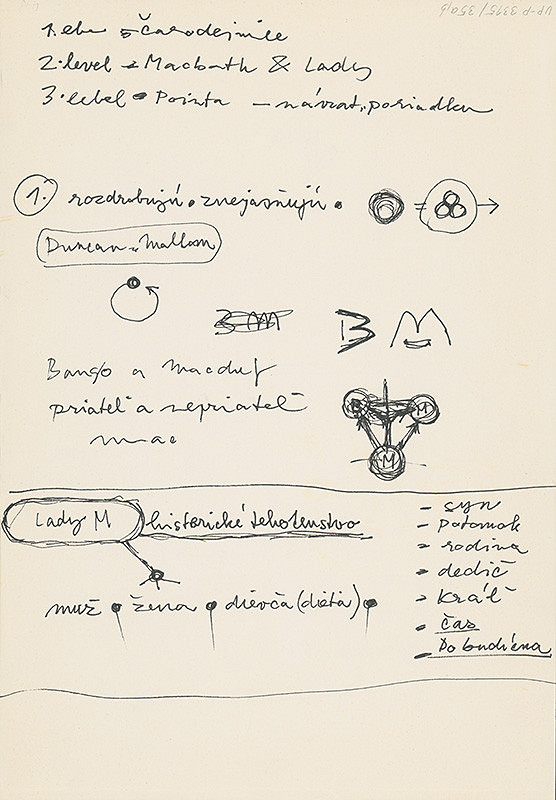 UP-P 3395/35a,b
1. ebe = Čarodejnice
2. level = Macbath & Lady
3. lebel = Pointa – návrat, poriadku
1. rozdrobujú • znejasňujú • =
Duncan „Mallom
BM B M
Banqo a Macduf
priateľ a nepriateľ
mac
B M
M
Lady M historické tehotenstvo
– syn
– potomok
– rodina
– dedič
– kráľ
– čas
muž • žena • dievča (dieťa) •